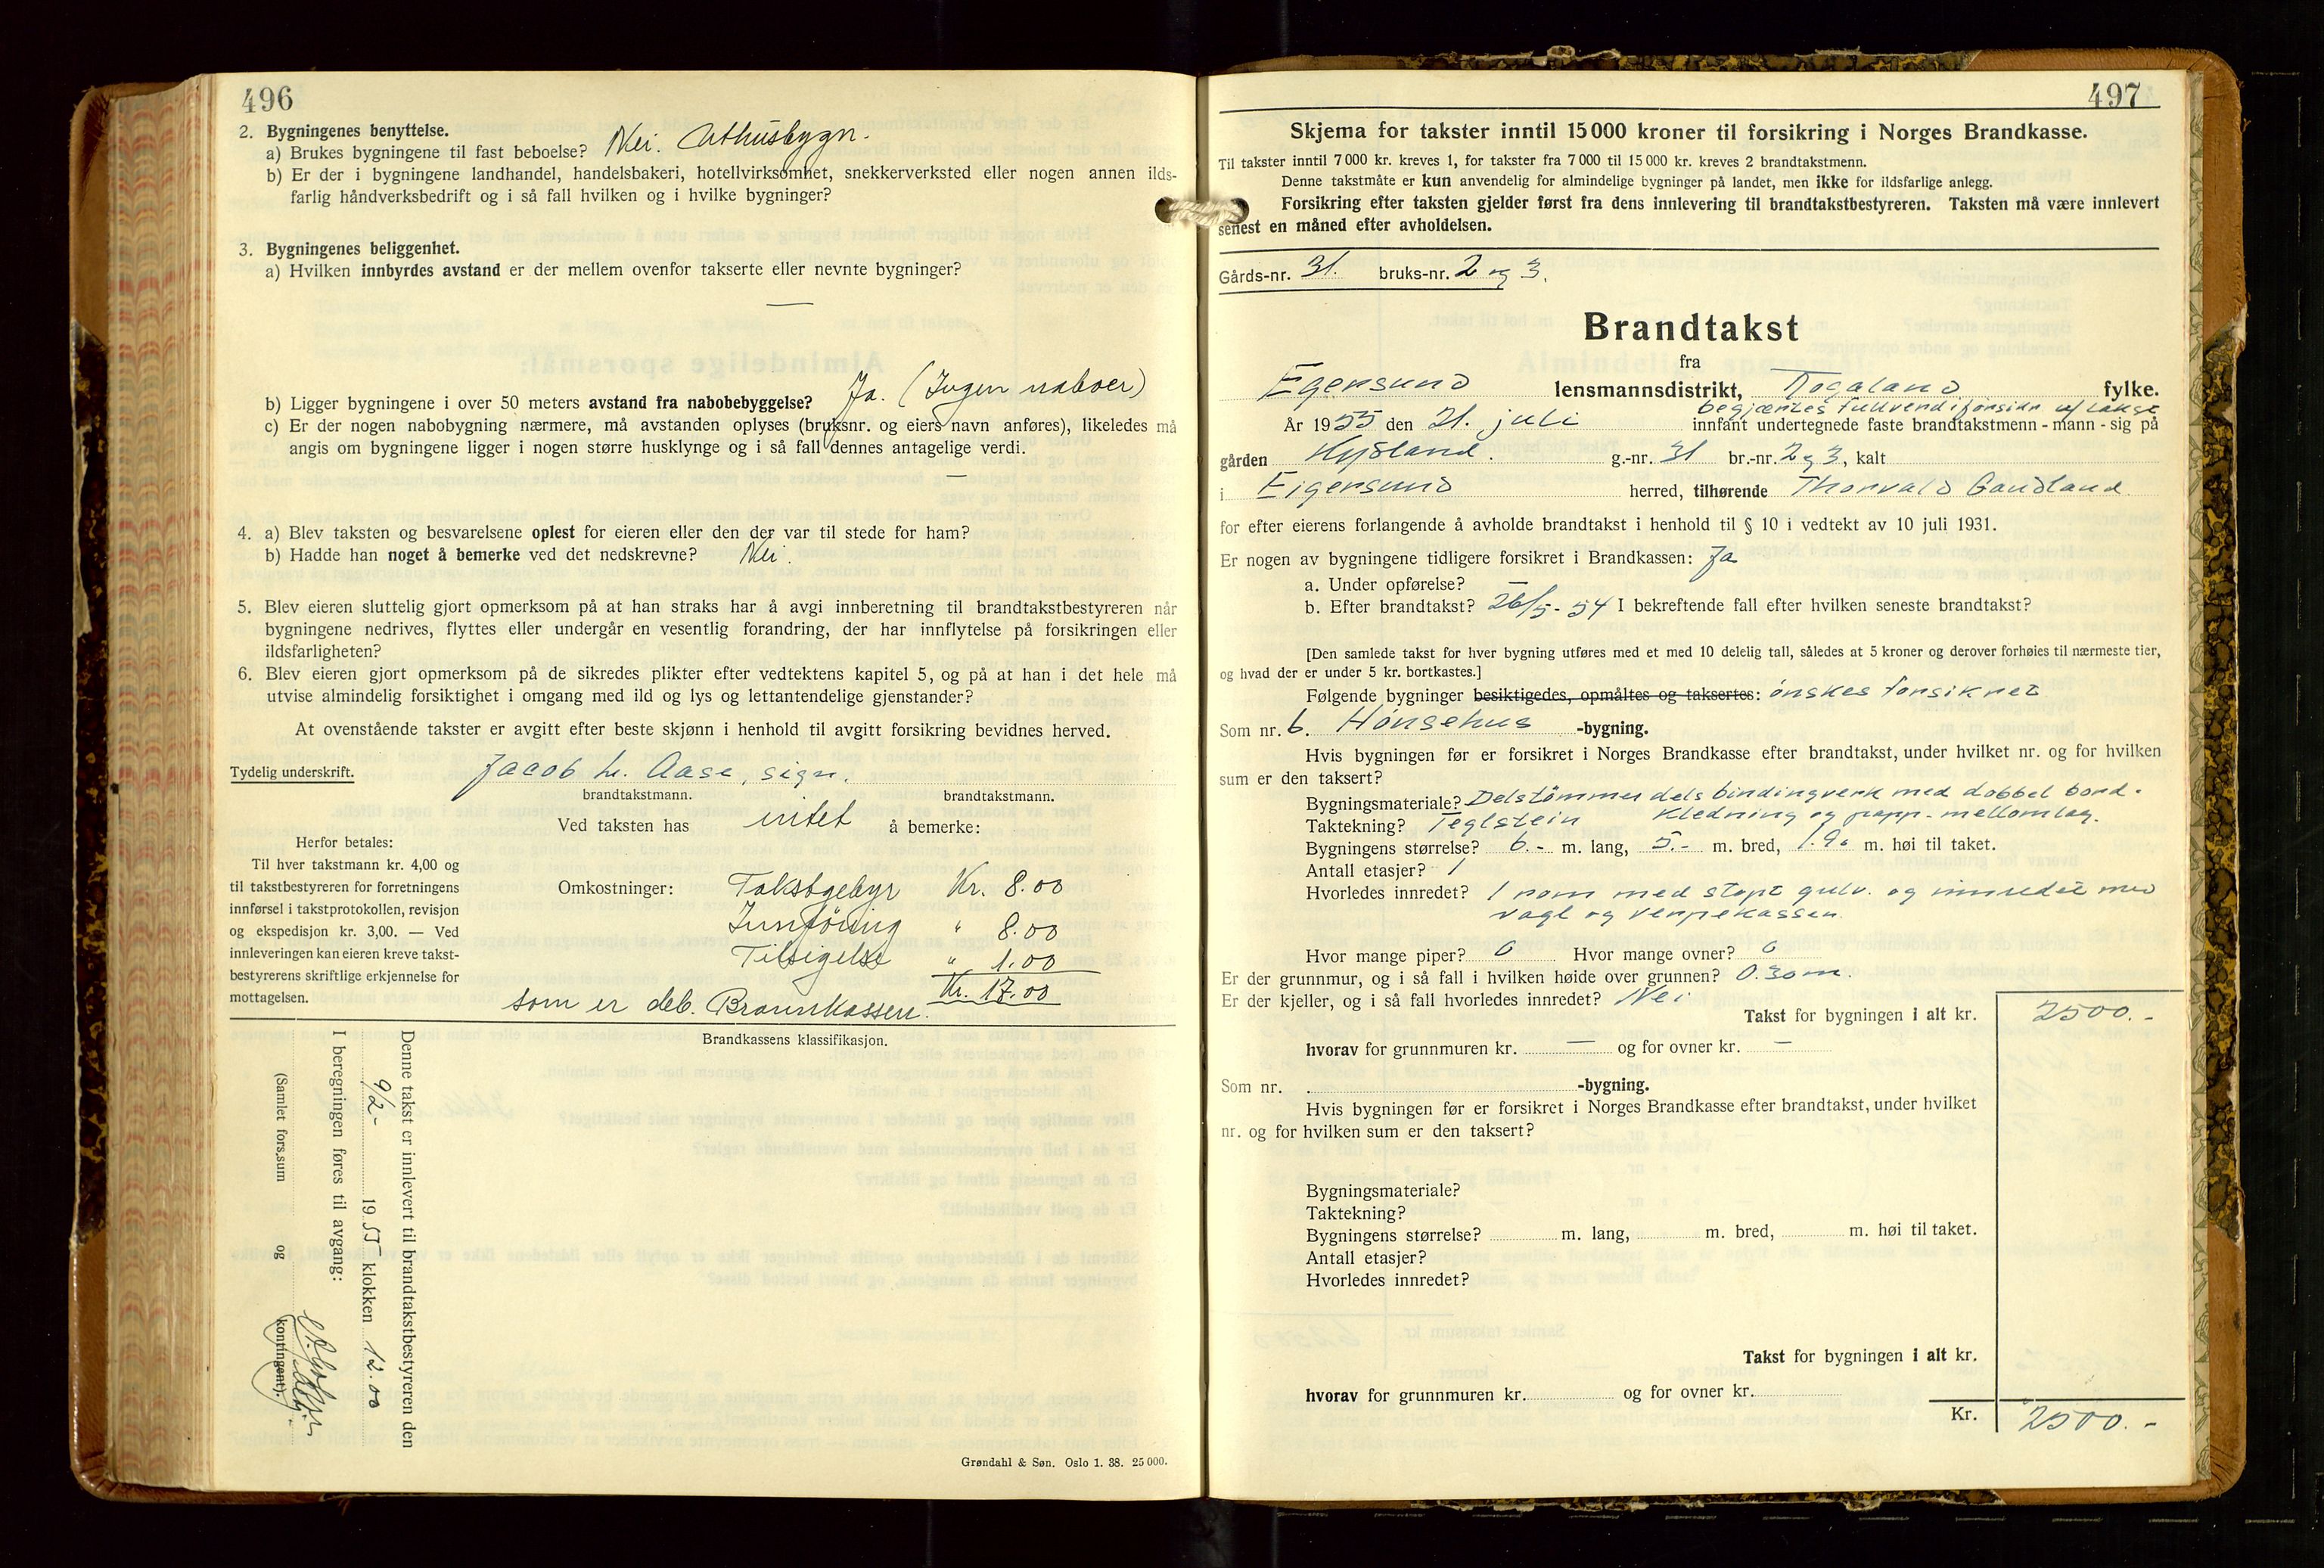 496
2. Bygningenes benyttelse.
a) Brukes bygningene til fast beboelse? Nei. Uthusbygn.
b) Er der i bygningene landhandel, handelsbakeri, hotellvirksomhet, snekkerverksted eller nogen annen ilds-
farlig håndverksbedrift og i så fall hvilken og i hvilke bygninger?
3. Bygningenes beliggenhet.
a) Hvilken innbyrdes avstand er der mellem ovenfor takserte eller nevnte bygninger?
—
b) Ligger bygningene i over 50 meters avstand fra nabobebyggelse? Ja. (Ingen naboer)
c) Er der nogen nabobygning nærmere, må avstanden oplyses (bruksnr. og eiers navn anføres), likeledes må
angis om bygningene ligger i nogen større husklynge og i så fall dennes antagelige verdi.
—
4. a) Blev taksten og besvarelsene oplest for eieren eller den der var til stede for ham?
b) Hadde han noget å bemerke ved det nedskrevne? Nei.
5. Blev eieren sluttelig gjort opmerksom på at han straks har å avgi innberetning til brandtakstbestyreren når
bygningene nedrives, flyttes eller undergår en vesentlig forandring, der har innflytelse på forsikringen eller
ildsfarligheten?
6. Blev eieren gjort opmerksom på de sikredes plikter efter vedtektens kapitel 5, og på at han i det hele må
utvise almindelig forsiktighet i omgang med ild og lys og lettantendelige gjenstander?
At ovenstående takster er avgitt efter beste skjønn i henhold til avgitt forsikring bevidnes herved.
Tydelig underskrift. Jacob H. Aase, sign.
brandtakstmann. brandtakstmann.
Ved taksten has intet å bemerke:
Herfor betales:
Til hver takstmann kr. 4,00 og
til takstbestyreren for forretningens
innførsel i takstprotokollen, revisjon
og ekspedisjon kr. 3,00. — Ved
innleveringen kan eieren kreve takst-
bestyrerens skriftlige erkjennelse for
mottagelsen.
Omkostninger: Takstgebyr Kr. 8.00
Innföring " 8.00
Tilsigelse " 1.00
Kr. 17.00
som er deb. Brannkassen.
Brandkassens klassifikasjon.
Denne takst er innlevert til brandtakstbestyreren den
9/2- 1955 klokken 12.00
I beregningen føres til avgang:
(Samlet fors.sum og kontingent).
Grøndahl & Søn. Oslo 1. 38. 25 000.
497
Skjema for takster inntil 15 000 kroner til forsikring i Norges Brandkasse.
Til takster inntil 7 000 kr. kreves 1, for takster fra 7 000 til 15 000 kr. kreves 2 brandtakstmenn.
Denne takstmåte er kun anvendelig for almindelige bygninger på landet, men ikke for ildsfarlige anlegg.
Forsikring efter taksten gjelder først fra dens innlevering til brandtakstbestyreren. Taksten må være innlevert
senest en måned efter avholdelsen.
Gårds-nr. 31. bruks-nr. 2 og 3.
Brandtakst
fra
Egersund lensmannsdistrikt, Rogaland fylke.
begjærtes fullverdiforsikr. uf takst
År 1955 den 21. juli innfant undertegnede faste brandtakstmenn - mann - sig på
gården Hysland. g.-nr. 31 br.-nr. 2 og 3, kalt
i Eigersund herred, tilhørende Thorvald Gaudland
for efter eierens forlangende å avholde brandtakst i henhold til § 10 i vedtekt av 10 juli 1931.
Er nogen av bygningene tidligere forsikret i Brandkassen: Ja
a. Under opførelse? —
b. Efter brandtakst? 26/5-54 I bekreftende fall efter hvilken seneste brandtakst?
[Den samlede takst for hver bygning utføres med et med 10 delelig tall, således at 5 kroner og derover forhøies til nærmeste tier,
og hvad der er under 5 kr. bortkastes.]
Følgende bygninger besiktigedes, opmåltes og taksertes: ønskes forsikret
Som nr. 6. Hønsehus -bygning.
Hvis bygningen før er forsikret i Norges Brandkasse efter brandtakst, under hvilket nr. og for hvilken
sum er den taksert?
Bygningsmateriale? Dels tømmer dels bindingverk med dobbel bord-
Taktekning? Teglstein kledning og papp-mellomlag.
Bygningens størrelse? 6.- m. lang, 5.- m. bred, 1.90 m. høi til taket.
Antall etasjer? 1
Hvorledes innredet? 1 rom med støpt gulv. og innredet med
vagl og verpekasser.
Hvor mange piper? 0 Hvor mange ovner? 0
Er der grunnmur, og i så fall i hvilken høide over grunnen? 0.30 m.
Er der kjeller, og i så fall hvorledes innredet? Nei
Takst for bygningen i alt kr. 2500.-
hvorav for grunnmuren kr. — og for ovner kr. —
Som nr. -bygning.
Hvis bygningen før er forsikret i Norges Brandkasse efter brandtakst, under hvilket
nr. og for hvilken sum er den taksert?
Bygningsmateriale?
Taktekning?
Bygningens størrelse? m. lang, m. bred, m. høi til taket.
Antall etasjer?
Hvorledes innredet?
Takst for bygningen i alt kr.
hvorav for grunnmuren kr. og for ovner kr.
Kr. 2500.-